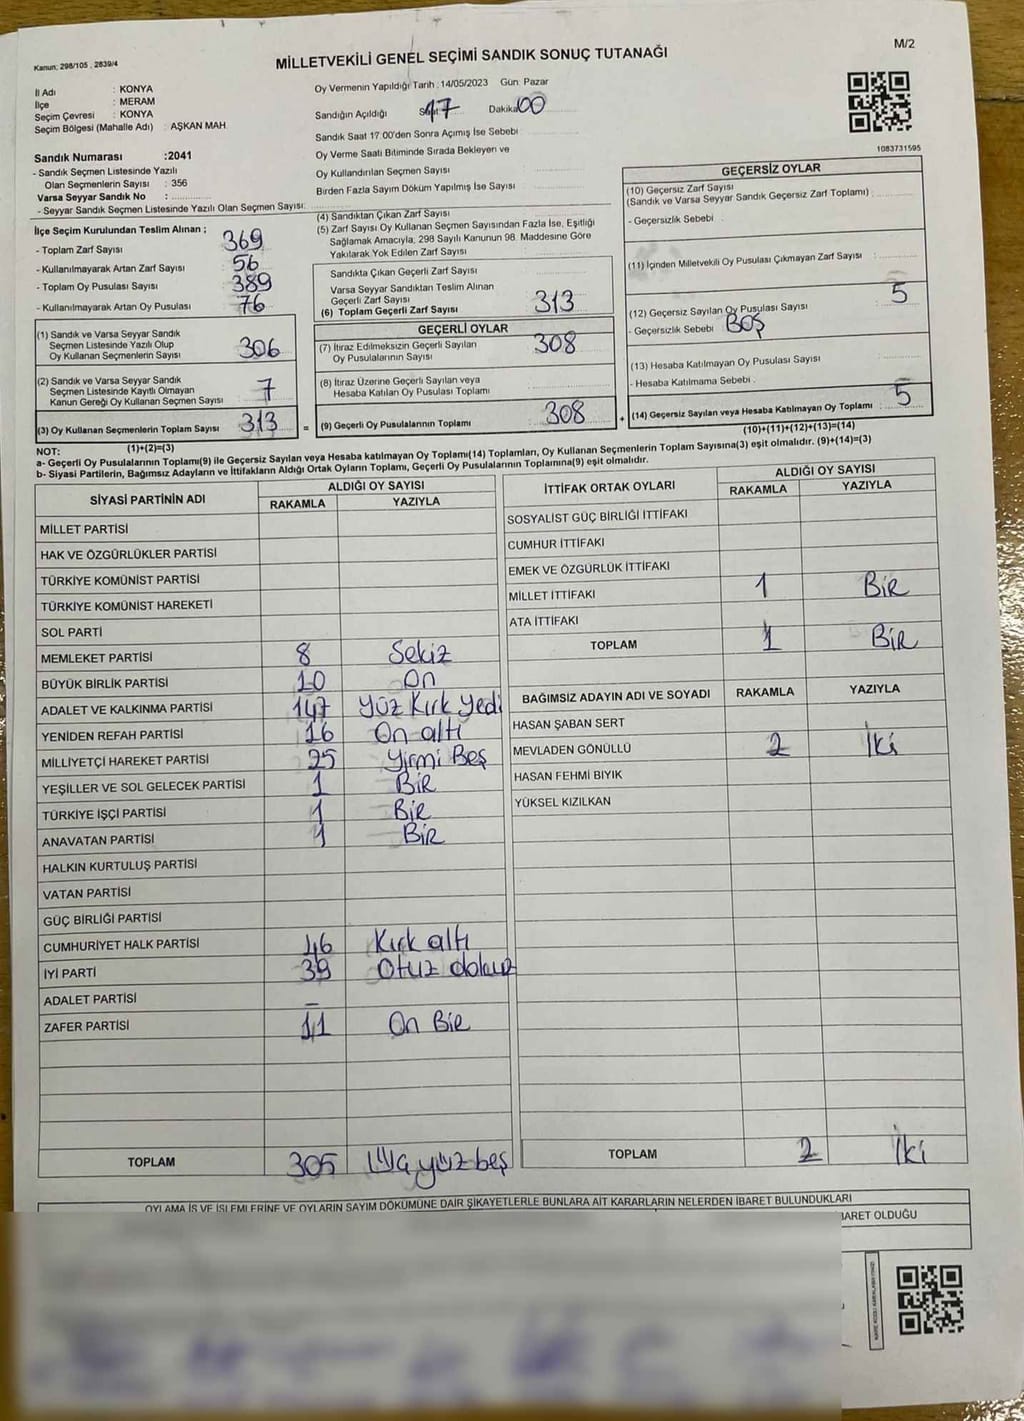 Kanun: 298/105 , 2839/4
MİLLETVEKİLİ GENEL SEÇİMİ SANDIK SONUÇ TUTANAĞI
M/2
İl Adı : KONYA
İlçe : MERAM
Seçim Çevresi : KONYA
Seçim Bölgesi (Mahalle Adı) : AŞKAN MAH.
Sandık Numarası :2041
- Sandık Seçmen Listesinde Yazılı
Olan Seçmenlerin Sayısı : 356
Varsa Seyyar Sandık No :
- Seyyar Sandık Seçmen Listesinde Yazılı Olan Seçmen Sayısı:
Oy Vermenin Yapıldığı Tarih :14/05/2023 Gün: Pazar
Sandığın Açıldığı Saat 17 Dakika 00
Sandık Saat 17:00'den Sonra Açımış İse Sebebi
Oy Verme Saati Bitiminde Sırada Bekleyen ve
Oy Kullandırılan Seçmen Sayısı
Birden Fazla Sayım Döküm Yapılmış İse Sayısı
1083731595
İlçe Seçim Kurulundan Teslim Alınan ;
- Toplam Zarf Sayısı 369
- Kullanılmayarak Artan Zarf Sayısı 56
- Toplam Oy Pusulası Sayısı 389
- Kullanılmayarak Artan Oy Pusulası 76
(1) Sandık ve Varsa Seyyar Sandık
Seçmen Listesinde Yazılı Olup
Oy Kullanan Seçmenlerin Sayısı 306
(2) Sandık ve Varsa Seyyar Sandık
Seçmen Listesinde Kayıtlı Olmayan
Kanun Gereği Oy Kullanan Seçmen Sayısı 7
(3) Oy Kullanan Seçmenlerin Toplam Sayısı 313
(1)+(2)=(3)
(4) Sandıktan Çıkan Zarf Sayısı
(5) Zarf Sayısı Oy Kullanan Seçmen Sayısından Fazla İse, Eşitliği
Sağlamak Amacıyla, 298 Sayılı Kanunun 98. Maddesine Göre
Yakılarak Yok Edilen Zarf Sayısı
Sandıkta Çıkan Geçerli Zarf Sayısı
Varsa Seyyar Sandıktan Teslim Alınan
Geçerli Zarf Sayısı
(6) Toplam Geçerli Zarf Sayısı 313
GEÇERLİ OYLAR
(7) İtiraz Edilmeksizin Geçerli Sayılan
Oy Pusulalarının Sayısı 308
(8) İtiraz Üzerine Geçerli Sayılan veya
Hesaba Katılan Oy Pusulası Toplamı
= (9) Geçerli Oy Pusulalarının Toplamı 308 +
GEÇERSİZ OYLAR
(10) Geçersiz Zarf Sayısı
(Sandık ve Varsa Seyyar Sandık Geçersiz Zarf Toplamı)
- Geçersizlik Sebebi
(11) İçinden Milletvekili Oy Pusulası Çıkmayan Zarf Sayısı
(12) Geçersiz Sayılan Oy Pusulası Sayısı 5
- Geçersizlik Sebebi BOŞ
(13) Hesaba Katılmayan Oy Pusulası Sayısı
- Hesaba Katılmama Sebebi
(14) Geçersiz Sayılan veya Hesaba Katılmayan Oy Toplamı : 5
(10)+(11)+(12)+(13)=(14)
NOT:
a- Geçerli Oy Pusulalarının Toplamı(9) ile Geçersiz Sayılan veya Hesaba katılmayan Oy Toplamı(14) Toplamları, Oy Kullanan Seçmenlerin Toplam Sayısına(3) eşit olmalıdır. (9)+(14)=(3)
b- Siyasi Partilerin, Bağımsız Adayların ve İttifakların Aldığı Ortak Oyların Toplamı, Geçerli Oy Pusulalarının Toplamına(9) eşit olmalıdır.
SİYASİ PARTİNİN ADI
ALDIĞI OY SAYISI
RAKAMLA YAZIYLA
MİLLET PARTİSİ
HAK VE ÖZGÜRLÜKLER PARTİSİ
TÜRKİYE KOMÜNİST PARTİSİ
TÜRKİYE KOMÜNİST HAREKETİ
SOL PARTİ
MEMLEKET PARTİSİ 8 Sekiz
BÜYÜK BİRLİK PARTİSİ 10 On
ADALET VE KALKINMA PARTİSİ 147 Yüz Kırk Yedi
YENİDEN REFAH PARTİSİ 16 On altı
MİLLİYETÇİ HAREKET PARTİSİ 25 Yirmi Beş
YEŞİLLER VE SOL GELECEK PARTİSİ 1 BİR
TÜRKİYE İŞÇİ PARTİSİ 1 BİR
ANAVATAN PARTİSİ 1 BİR
HALKIN KURTULUŞ PARTİSİ
VATAN PARTİSİ
GÜÇ BİRLİĞİ PARTİSİ
CUMHURİYET HALK PARTİSİ 46 Kırk altı
İYİ PARTİ 39 Otuz dokuz
ADALET PARTİSİ –
ZAFER PARTİSİ 11 On BİR
TOPLAM 305 Üç yüz beş
İTTİFAK ORTAK OYLARI
ALDIĞI OY SAYISI
RAKAMLA YAZIYLA
SOSYALİST GÜÇ BİRLİĞİ İTTİFAKI
CUMHUR İTTİFAKI
EMEK VE ÖZGÜRLÜK İTTİFAKI
MİLLET İTTİFAKI 1 BİR
ATA İTTİFAKI
TOPLAM 1 BİR
BAĞIMSIZ ADAYIN ADI VE SOYADI RAKAMLA YAZIYLA
HASAN ŞABAN SERT
MEVLADEN GÖNÜLLÜ 2 İki
HASAN FEHMİ BIYIK
YÜKSEL KIZILKAN
TOPLAM 2 İki
OYLAMA İŞ VE İŞLEMLERİNE VE OYLARIN SAYIM DÖKÜMÜNE DAİR ŞİKAYETLERLE BUNLARA AİT KARARLARIN NELERDEN İBARET BULUNDUKLARI
BARET OLDUĞU